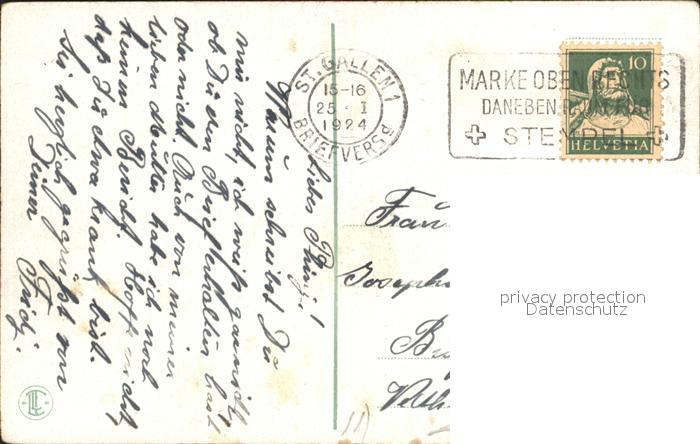 ST. GALLEN 1
15-16
25. I
1924
BRIEFVERSd
MARKE OBEN RECHTS
DANEBEN RAUM FÜR
STEMPEL
10
HELVETIA
Liebes
Warum schreibst Du
mir nicht, ich weiss gar nicht,
ob Du den Brief erhalten hast
oder nicht. Auch von meiner
lieben Mutter hab ich noch
keinen Bericht. Hoffe nicht,
daß Du etwa krank bist.
Sei herzlich gegrüßt von
Deiner Fridy.
Frau
Joseph
privacy protection
Datenschutz